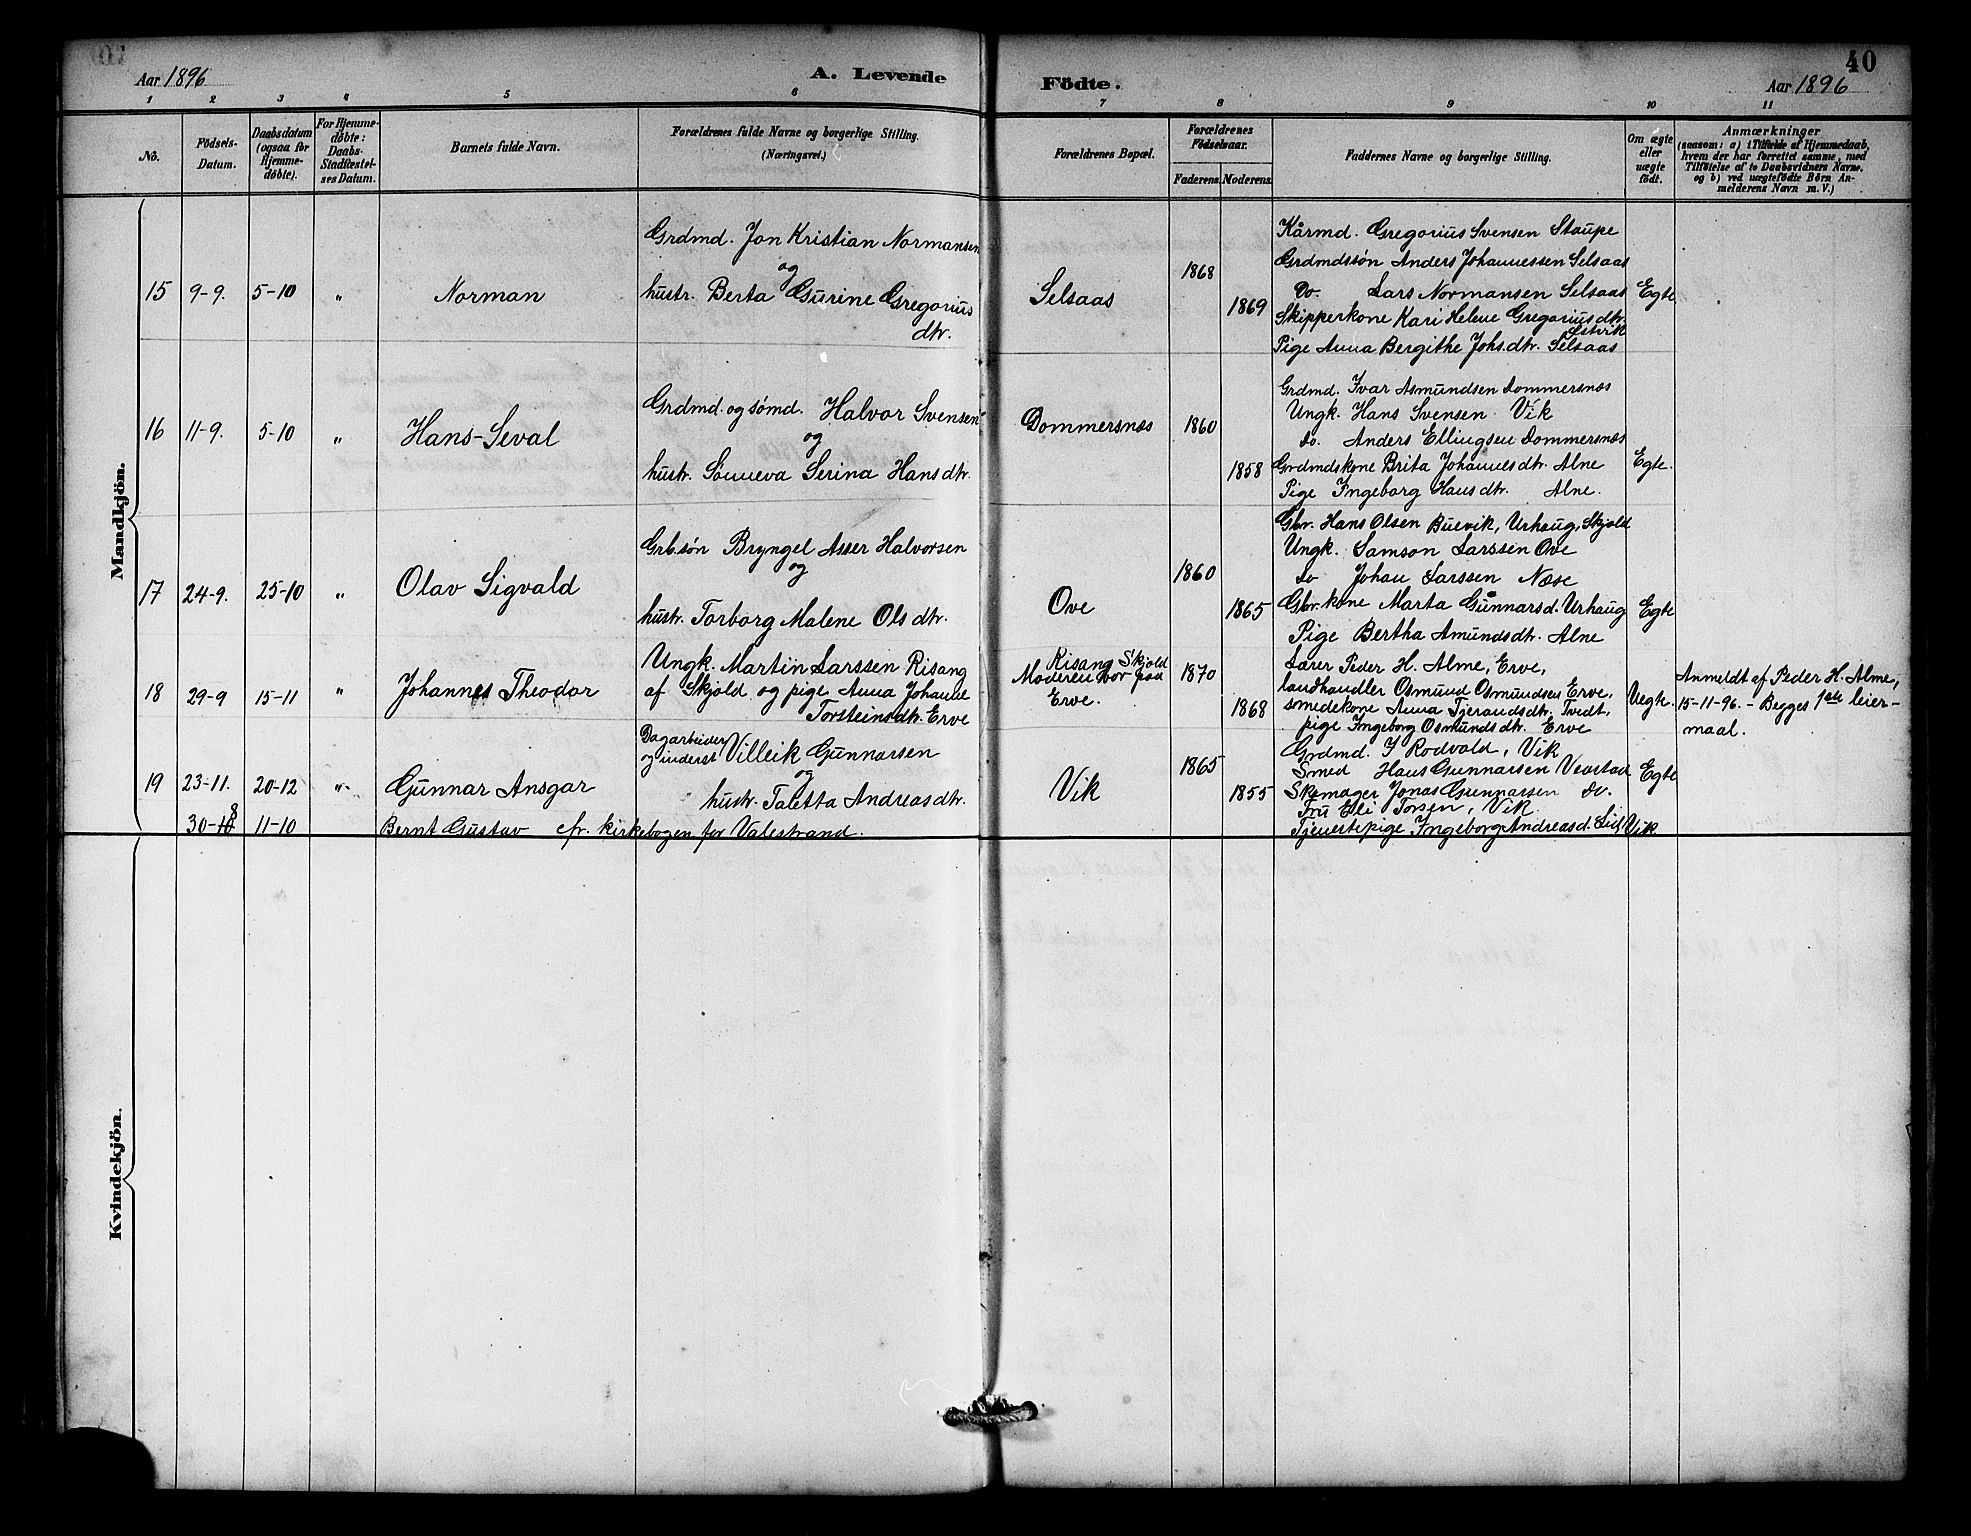 40
Aar 1896 A. Levende Födte. Aar 1896
1 2 3 4 5 6 7 8 9 10 11
No.
Födsels-
Datum.
Daabsdatum
(ogsaa for
Hjemme-
døbte).
For Hjemme-
døbte:
Daabs-
Stadfæstel-
ses Datum.
Barnets fulde Navn.
Forældrenes fulde Navne og borgerlige Stilling.
(Næringsvei.)
Forældrenes Bopæl.
Forældrenes
Födselsaar.
Faderens. Moderens.
Faddernes Navne og borgerlige Stilling.
Om ægte
eller
uægte
født.
Anmærkninger
(saasom: a) i Tilfælde af Hjemmedaab,
hvem der har forrettet samme, med
Tilføielse af to Daabsvidners Navne,
og b) ved uægtefødte Börn An-
melderens Navn m. V.)
Mandkjön.
15 9-9. 5-10 " Norman
Grdmd. Jon Kristian Normansen
og
hustr. Berta Gurine Gregorius
dtr.
Selsaas
1868
1869
Kårmd. Gregorius Svensen Staupe
Grdmdssön Anders Johannessen Selsaas
Do. Lars Normansen Selsaas
Skipperkone Kari Helene Gregoriusdtr.
Pige Anna Bergithe Johs.dtr. Selsaas
Egte
16 11-9. 5-10 " Hans-Seval
Grdmd. og sømd. Halvor Svensen
og
hustr. Sønneva Serina Hansdtr.
Dommersnæs
1860
1858
Grdmd. Ivar Asmundsen Dommersnæs
Ungk. Hans Svensen Vik
do. Anders Ellingsen Dommersnæs
Grdmdskone Brita Johannesdtr. Alne
Pige Ingeborg Hansdtr. Alne.
Egte.
17 24-9. 25-10 " Olav Sigvald
Grb.søn Bryngel Asser Halvorsen
og
hustr. Torborg Malene Olsdtr.
Ove
1860
1865
Gbr. Hans Olsen Buevik, Urhaug, Skjold
Ungk. Samson Larssen Ove
do Johan Larssen Næse
Gbr.kone Marta Gunnarsd. Urhaug
Pige Bertha Amundsdtr. Alne
Egte
18 29-9 15-11 " Johannes Theodor
Ungk. Martin Larssen Risang
af Skjold og pige Anna Johanne
Torsteinsdtr. Erve
Risang Skjold
Moderen bor paa
Erve.
1870
1868
Lærer Peder H. Alme, Erve,
landhandler Osmund Osmundsen Erve,
smedekone Anna Tjerandsdtr. Tvedt,
pige Ingeborg Osmundsdtr. Erve
Uegte.
Anmeldt af Peder H. Alme,
15-11-96. - Begges 1ste leier-
maal.
19 23-11. 20-12 " Gunnar Ansgar
Dagarbeider
og inderst Villeik Gunnarsen
og
hustr. Taletta Andreasdtr.
Vik
1865
1855
Grdmd. I Rodvald, Vik
Smed Hans Gunnarsen
Skomager Jonas Gunnarsen do.
Fru Eli Torsen, Vik.
Tjenestepige Ingeborg Andreasd. Vik
Egte
30-10 8 11-10 Bernt Gustav cfr. kirkebogen for Valestrand.
Kvindekjön.